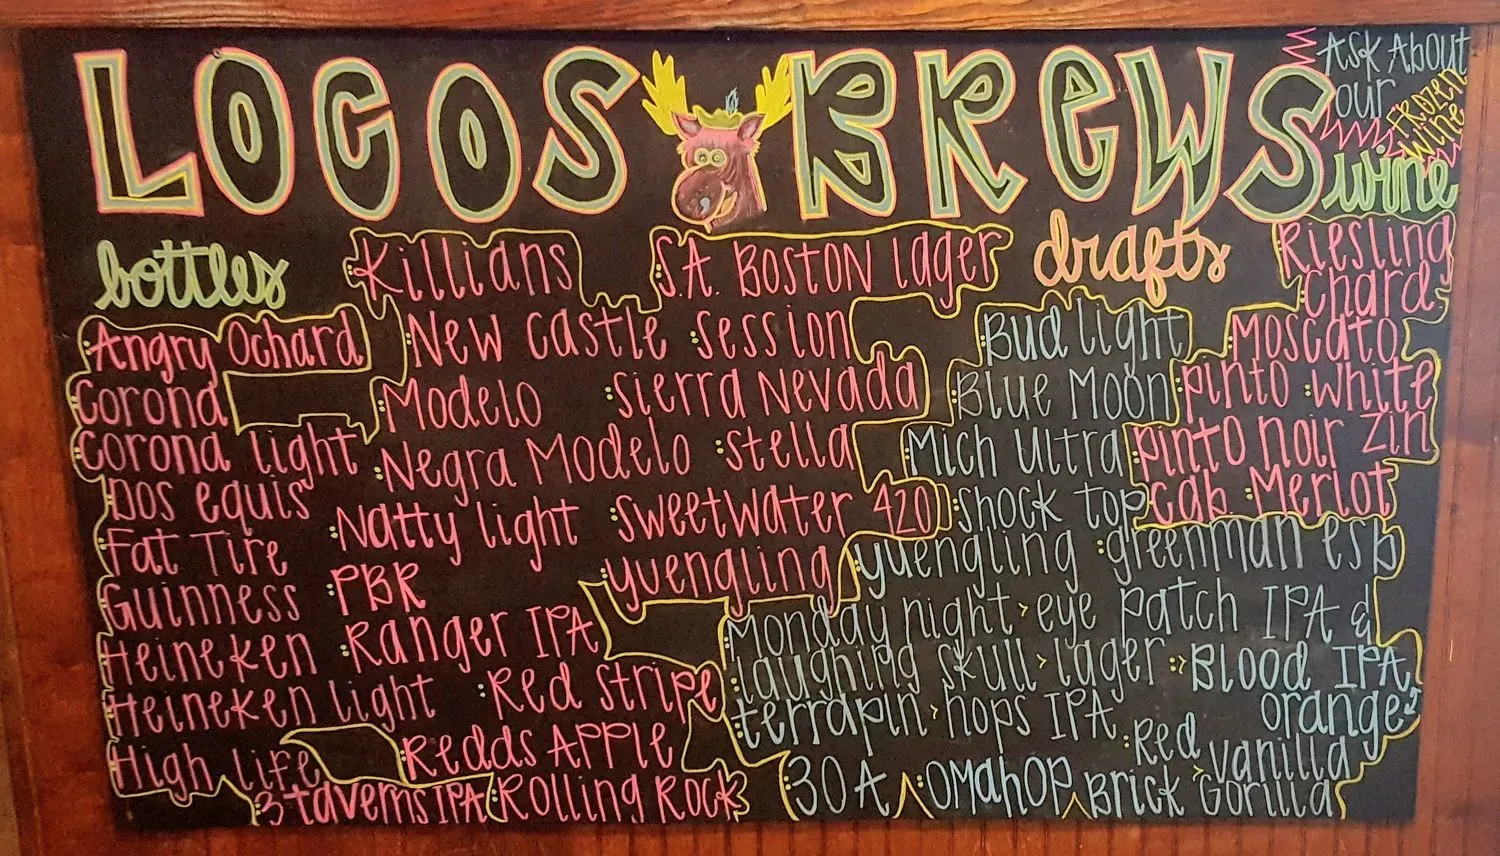 LOCOS BREWS
Ask About
our
FROZEN
wine
wine
bottles
Killians
S.A. Boston lager
Angry Ochard
New castle
Session
Corona
Modelo
Sierra Nevada
Corona light
Negra Modelo
Stella
Dos equis
Natty light
Sweetwater 420
Fat Tire
PBR
yuengling
Guinness
Ranger IPA
Heineken
Red Stripe
Heineken light
Redds APPle
High life
3 taverns IPA
Rolling Rock
drafts
Bud light
Blue Moon
Mich Ultra
Shock top
yuengling
greenman esb
Monday night > eye patch IPA &
laughing skull > lager
> Blood
orange
IPA
terrapin > hops IPA
Red
Brick
> vanilla
Gorilla
30A
OMAHOP
Riesling
Chard.
Moscato
pinto
white
Zin
pinto noir
cab.
Merlot